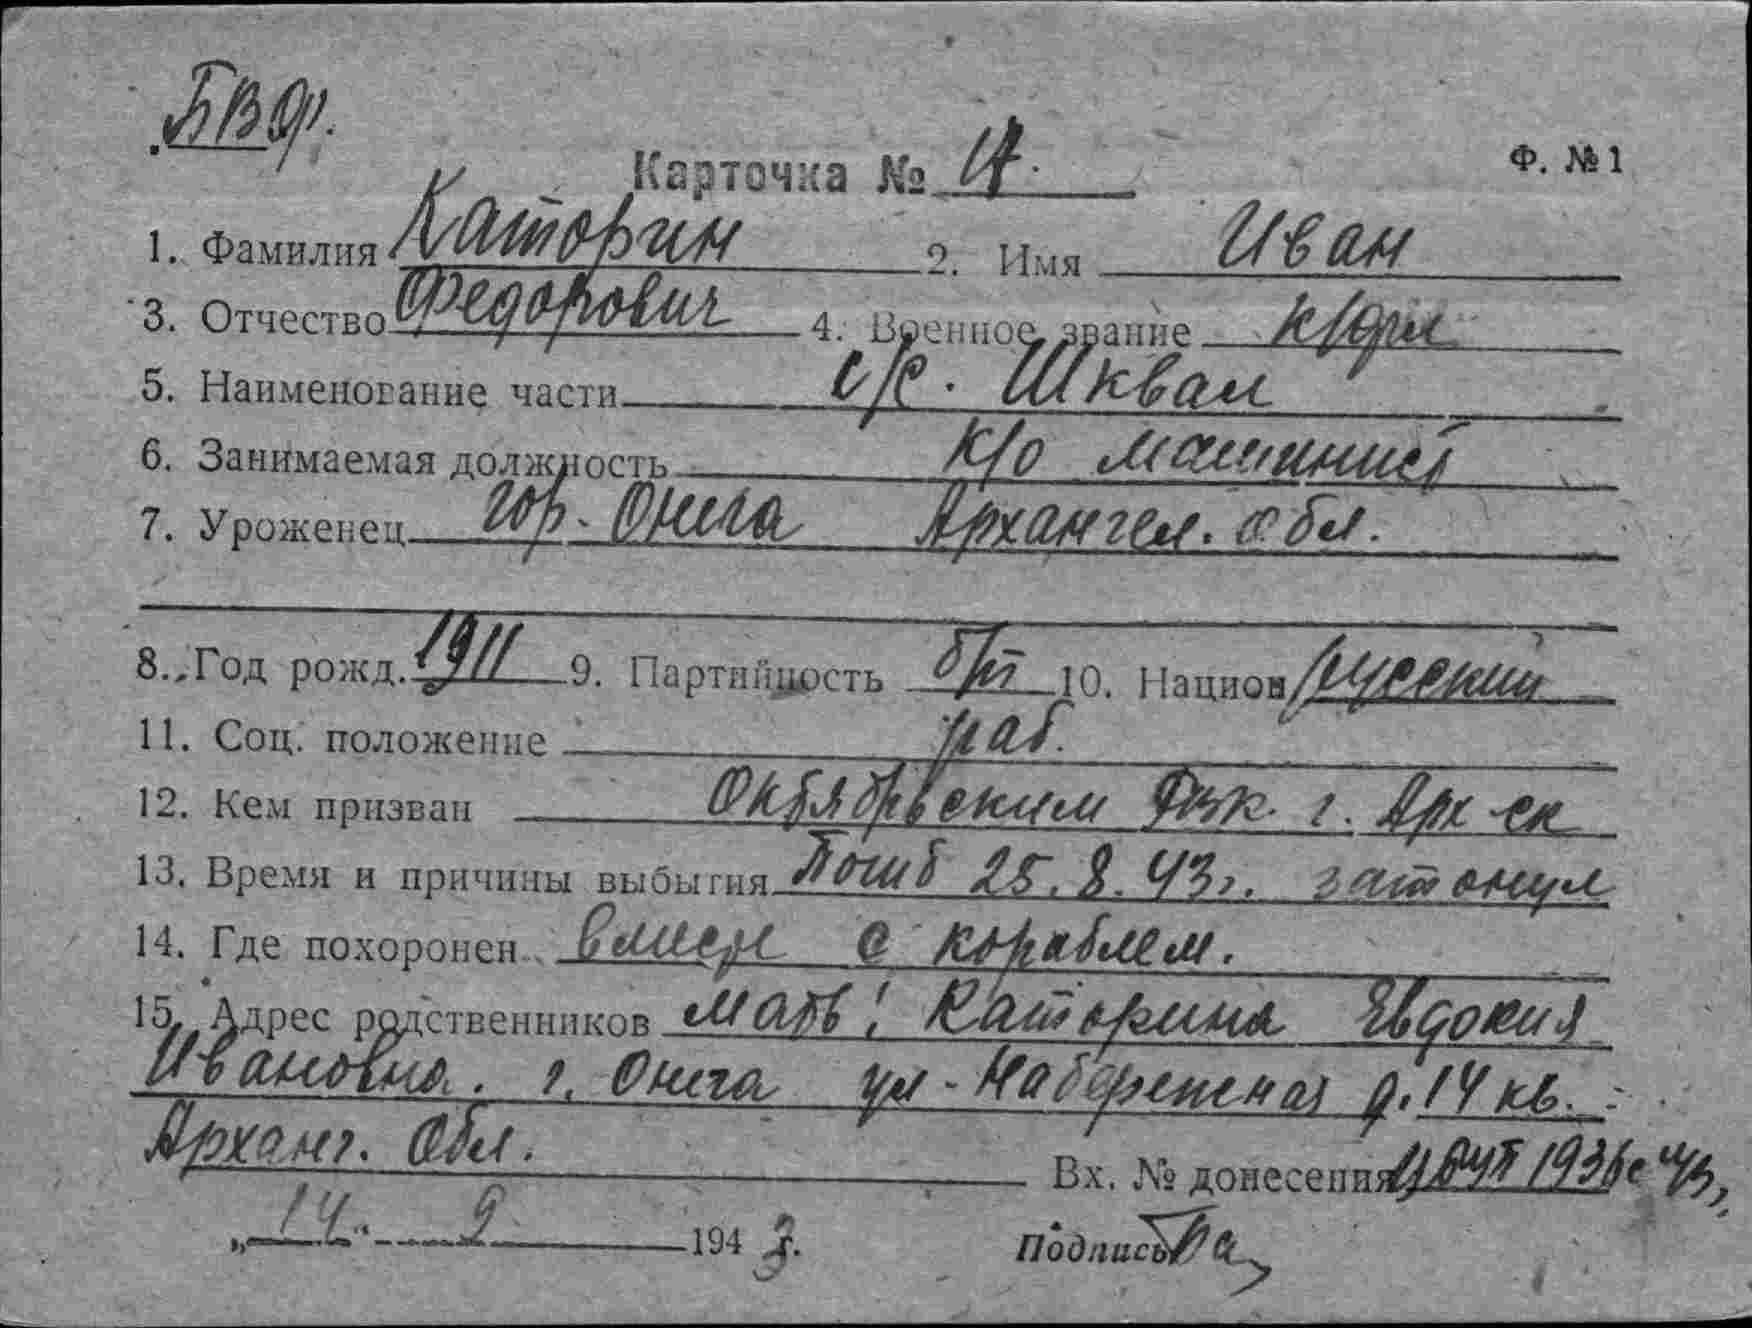 БВФ.
Карточка № 17.
Ф. № 1
1. Фамилия Каторин 2. Имя Иван
3. Отчество Федорович 4. Военное звание к/фл
5. Наименование части с/с. Шквал
6. Занимаемая должность к/о машинист
7. Уроженец гор. Онега Архангел. обл.
8. Год рожд. 1911 9. Партийность б/п 10. Национ русский
11. Соц. положение раб.
12. Кем призван Октябрьским РВК. г. Арх-ск
13. Время и причины выбытия Погиб 25.8.43г. затонул
14. Где похоронен вместе с кораблем.
15. Адрес родственников мать: Каторина Евдокия
Ивановна. г. Онега ул. Набережная д. 14 кв.
Арханг. Обл.
Вх. № донесения 1936с
„14" 9 1943г.
Подпись